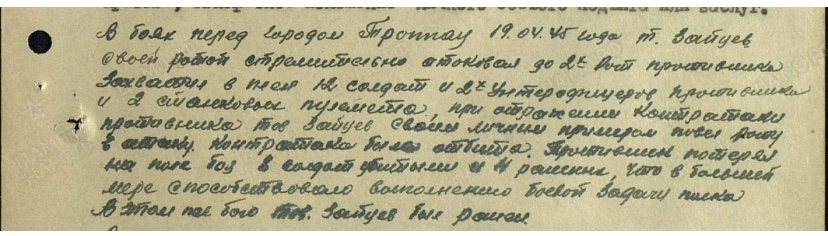 В боях перед городом Троппау 19.04.45 года т. Зайцев
своей ротой стремительно атоковал до 2х рот противника
Захватив в плен 12 солдат и 2х Унтерофицеров противника
и 2 станковых пулемета, при отражении контратаки
противника тов Зайцев своим личным примером повел роту
в атаку. Контратака была отбита. Противник потерял
на поле боя 8 солдат убитыми и 11 раненых, что в большей
мере способствовало выполнению боевой задачи полка
В этом же бою тов. Зайцев был ранен.